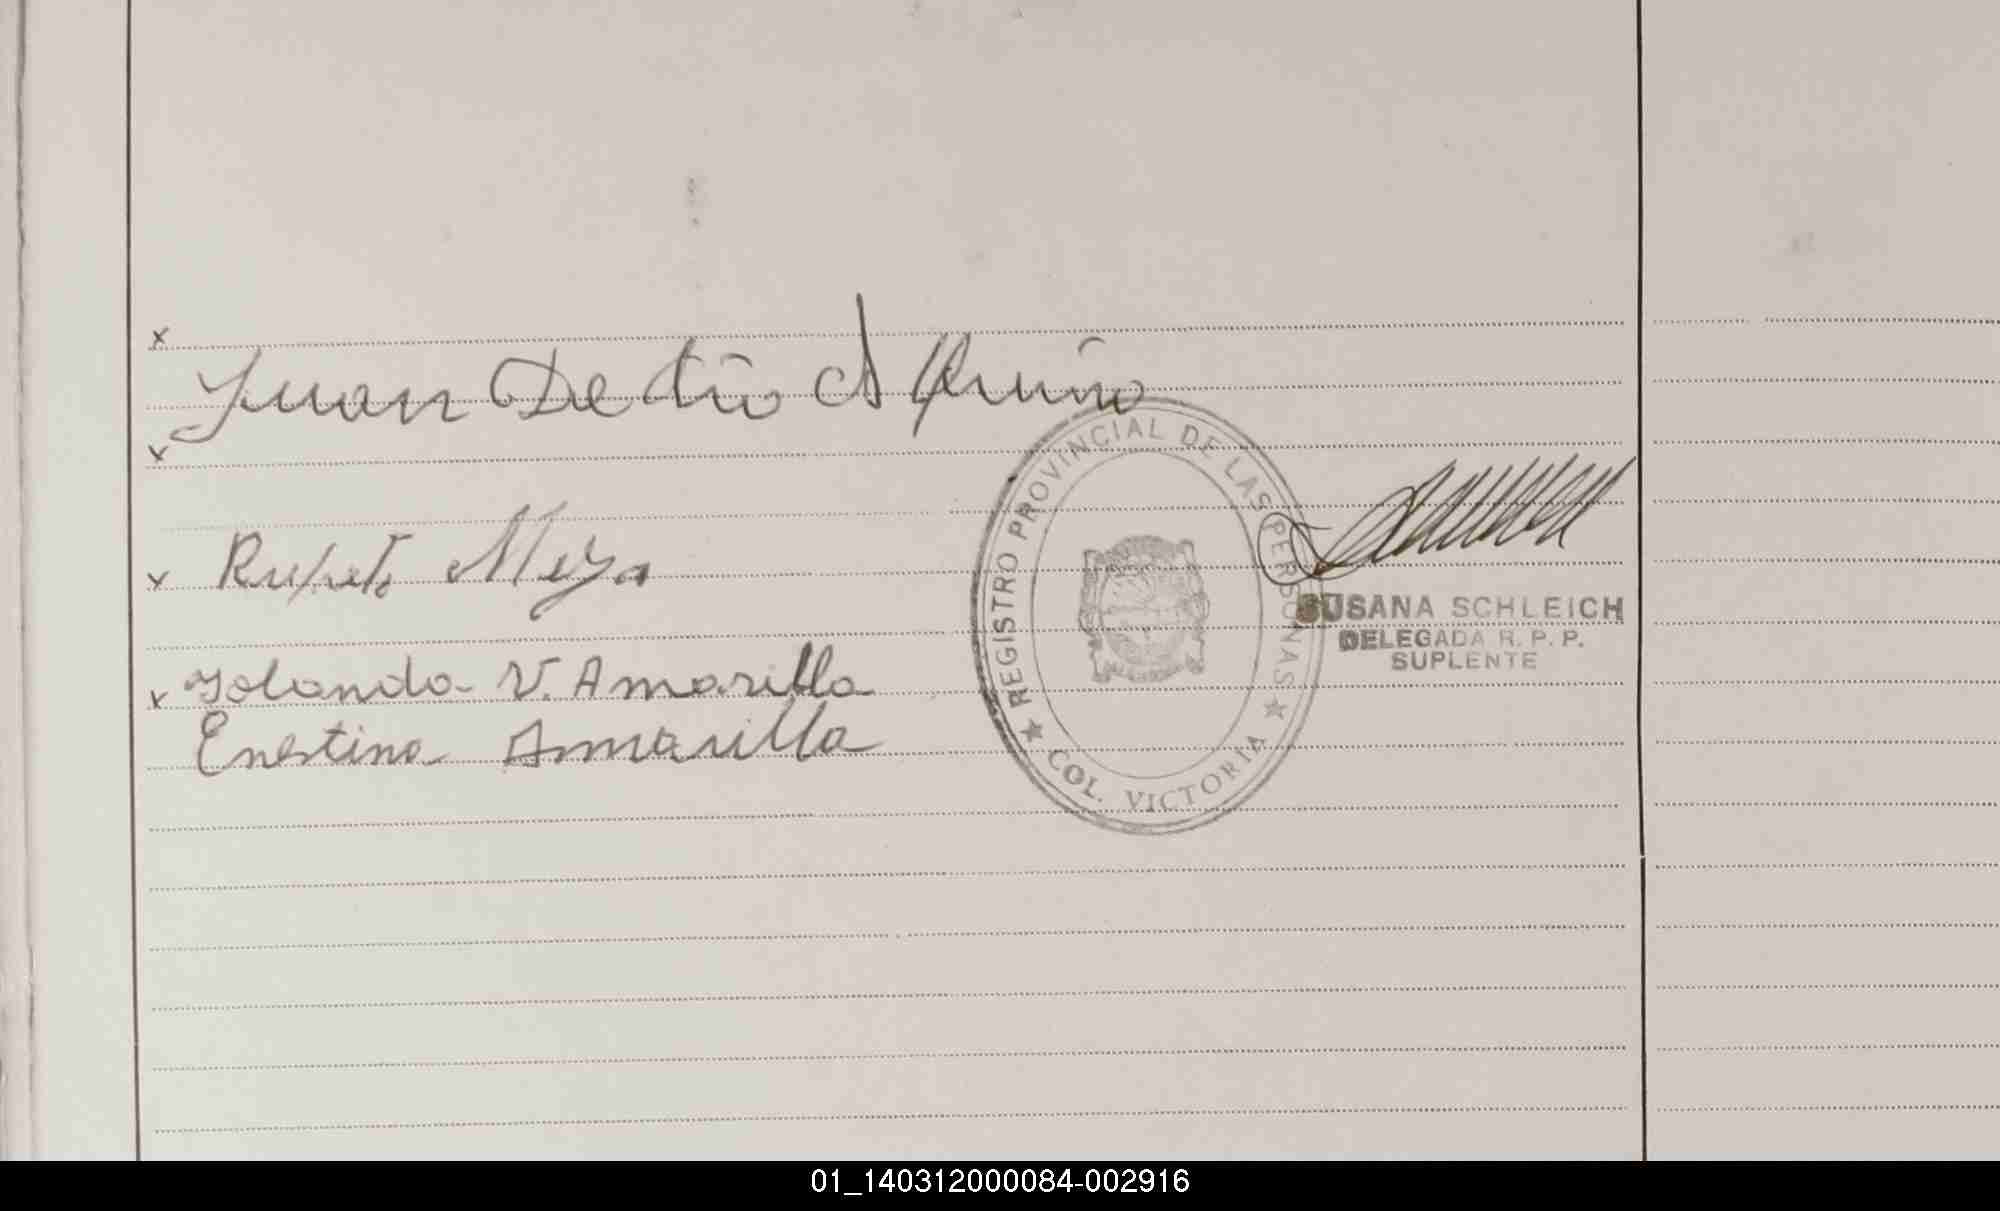 x
Juan De Dio Aquino
x
x Ruperto Meza
x Yolanda V. Amarilla
Enestina Amarilla
REGISTRO PROVINCIAL DE LAS PERSONAS
★ COL. VICTORIA ★
SUSANA SCHLEICH
DELEGADA R. P. P.
SUPLENTE
01_140312000084-002916